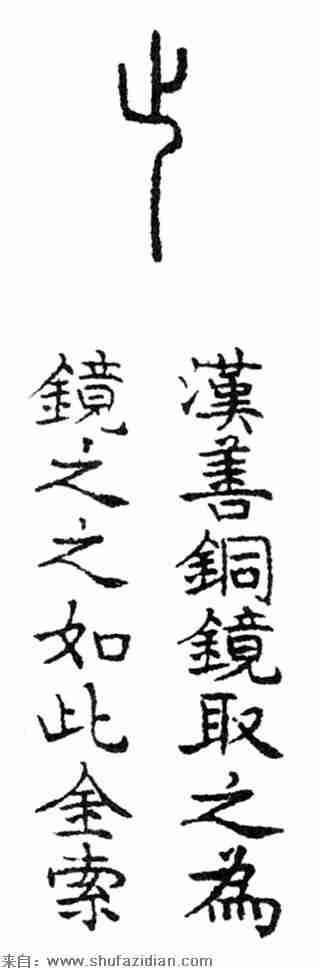 之
漢善銅鏡取之為
鏡之之如此金索
来自：www.shufazidian.com